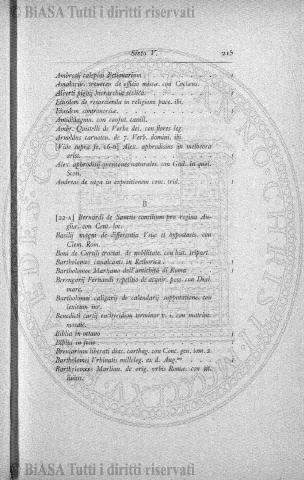 © BiASA Tutti i diritti riservati
Sixto V. 215
Ambrosij calepini dictionarium 1
Amalarius treveren. de officio misse. con Cocleus. 1
Alberti pighij hierarchia ecclica. 1
Eiusdem de resarcienda in religione pace. ibi.
Eiusdem controversiæ. 1
con confut. cavill. 1
Ambr. Quistelli de Verbo dei. con flores leg.
Arnoldus carnoten. de 7. Verb. domini. ibi.
[Vide supra fo. 16-b] Alex. aphrodiseus in metheora
Alex. aphrodisij questiones naturales. con Gud. in quol.
Scoti. 1
Andreas de vega in expositionem conc. trid. 1
B
[22-a] Bernardi de Sanctis consilium pro regina An-
gliæ. con Cent. loc. 1
Basilij magni de differentia Vsiæ et hypostasis. con
Clem. Rom.
Boni de Curtili tractat. de nobilitate. con huit. tripart.
Bartholomeus cavalcanti. in Rethorica 1
Bartholomeo Marliano dell'antichità di Roma 1
Berengarij Fernandi repetitio de acquir. poss. con Duel
mare.
Bartholomei caligarij de calendarij supputatione. con
lexicon iur.
Benedicti curtij enchyridion terminor v. i. con matrim.
mosaic.
Biblia in ottavo 1
Biblia in folio 1
Breviarium liberati diac. carthag. con Conc. gen. tom. 2.
Bartholomei Vrbinatis milleleg. ex d. Aug.no 1
Bartholomæus Marlian. de orig. vrbis Romæ. con
© BiASA Tutti i diritti riservati